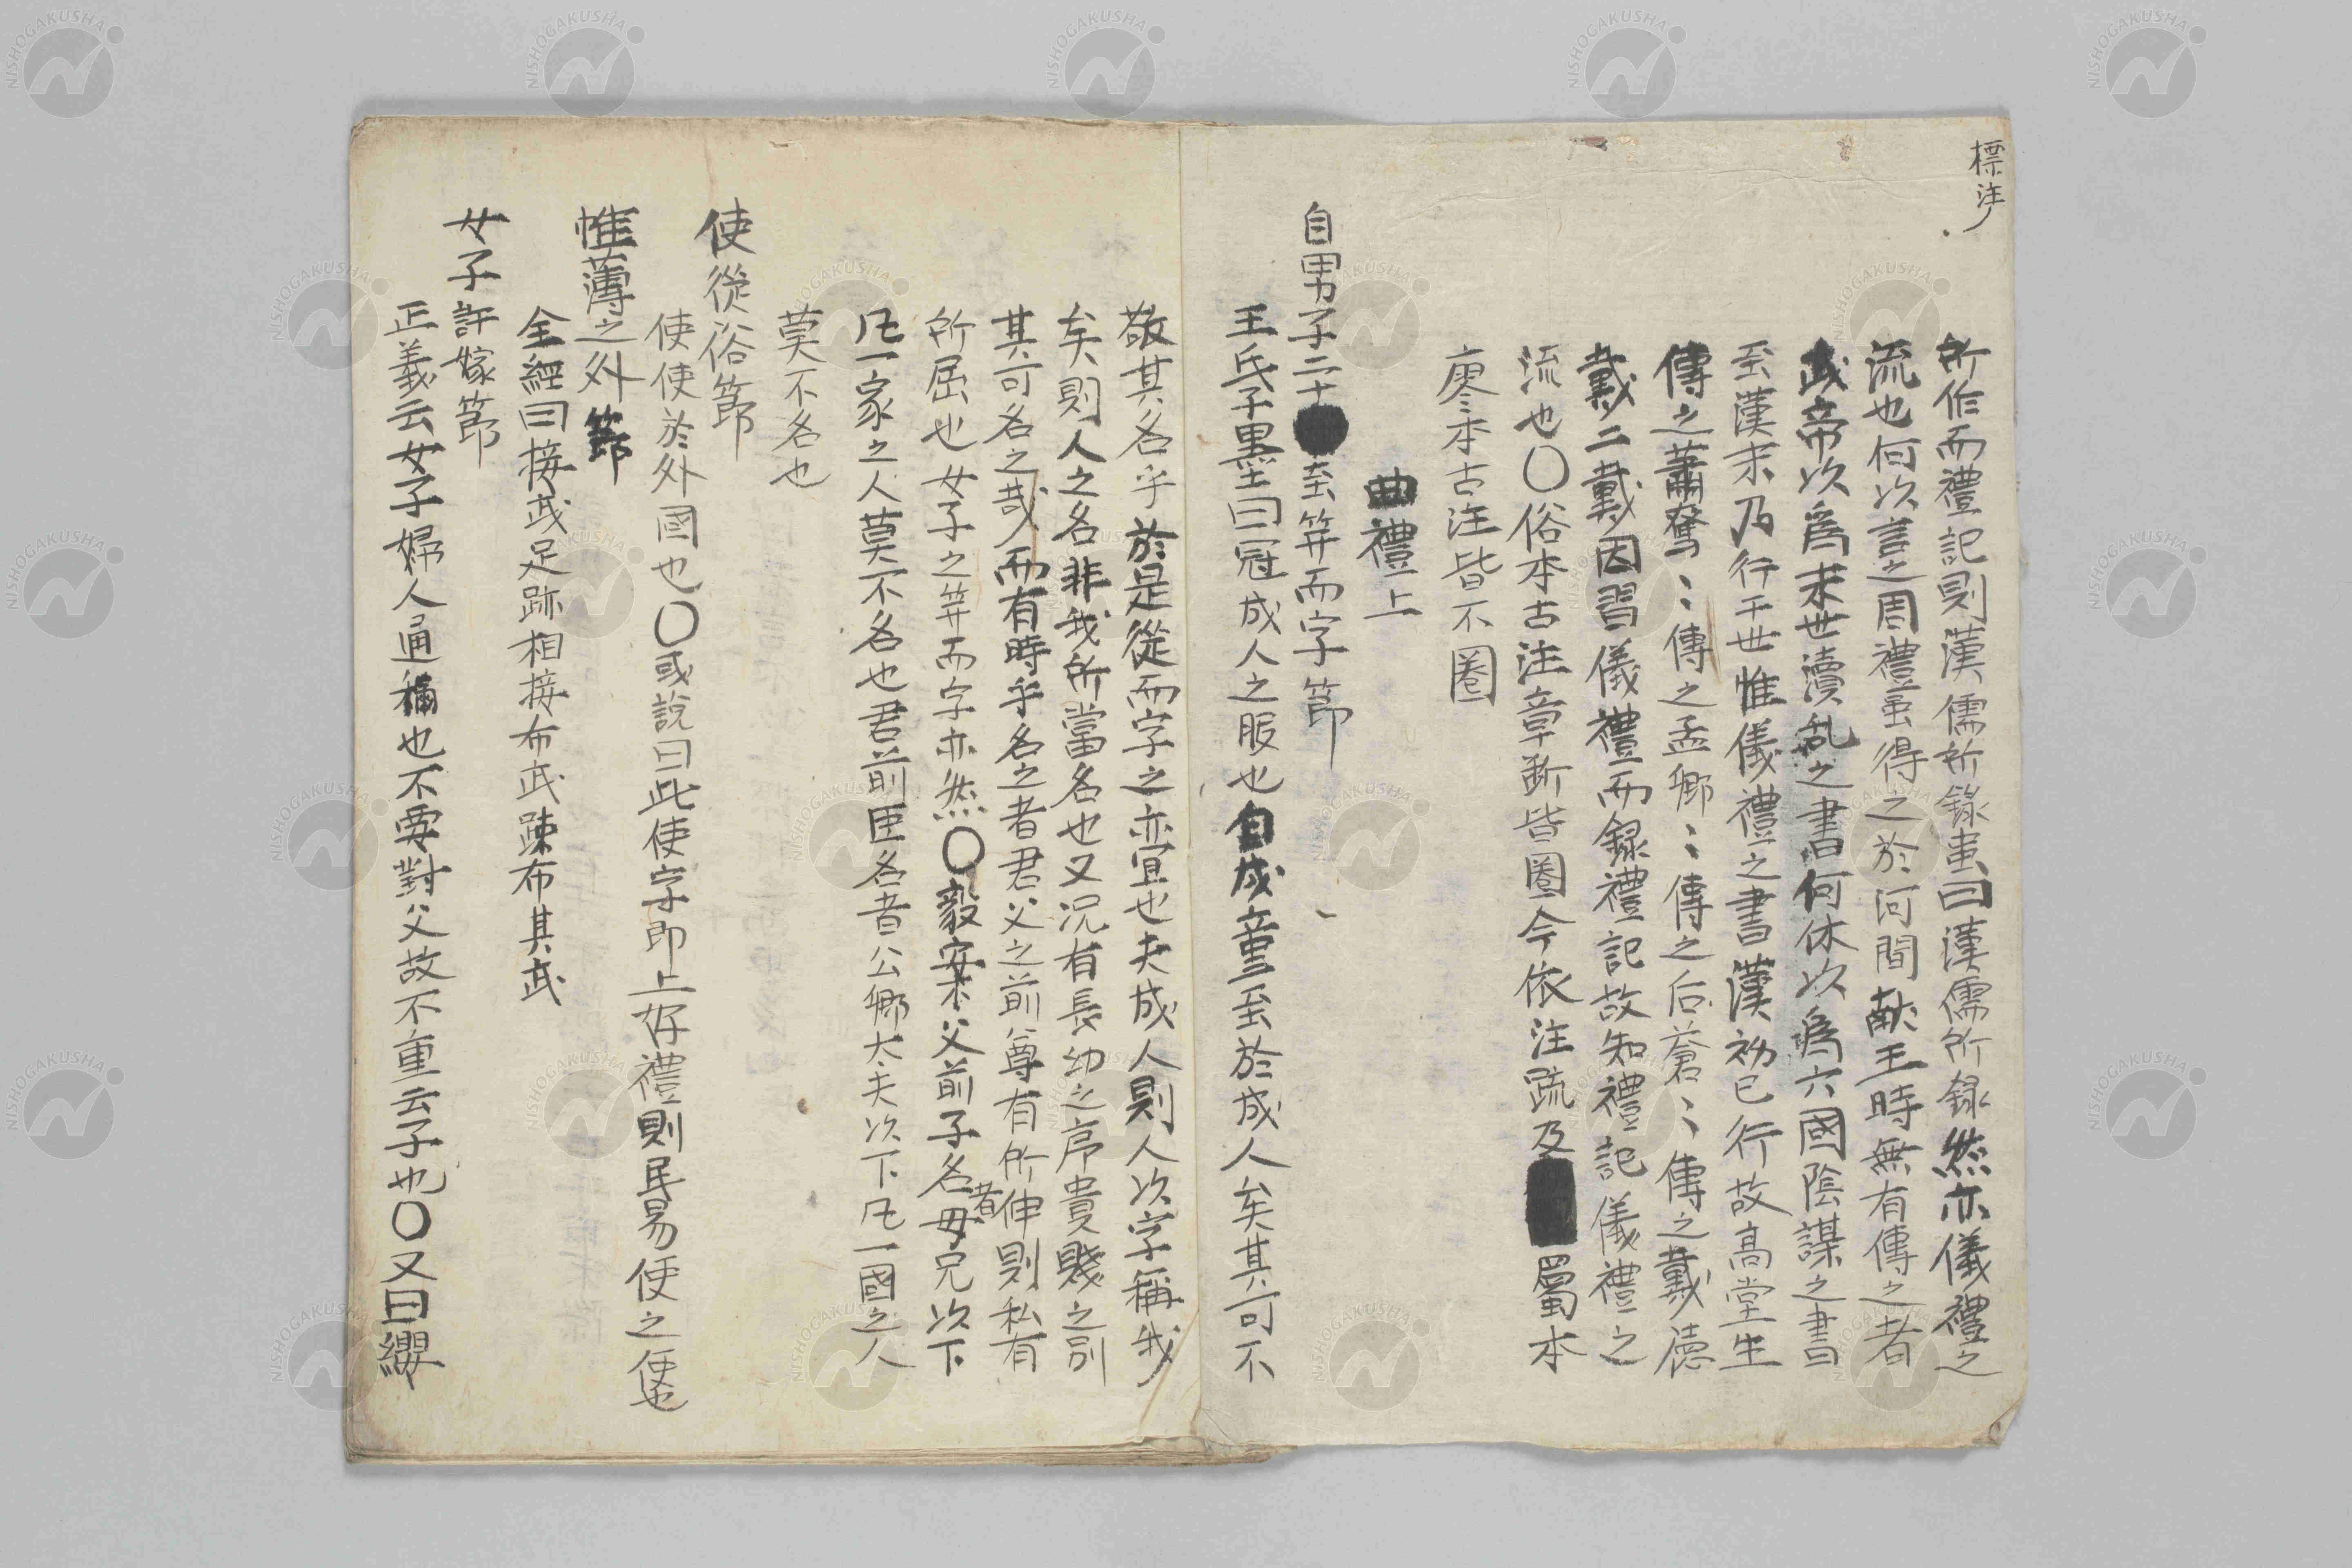 標注
所作而禮記則漢儒所錄畫曰漢儒所録然亦儀禮之
流也何以言之周禮虽得之於河間献王時無有傳之者
武帝以爲末世瀆乱之書何休以爲六國陰謀之書
至漢末乃行于世惟儀禮之書漢初已行故高堂生
傳之蕭奮〻傳之孟卿〻傳之后蒼〻傳之戴德
戴〻二戴因習儀禮而録禮記故知禮記儀禮之
流也〇俗本古注章断皆圏今依注疏及蜀本
廖本古注皆不圏
曲禮上
自男子二十至笄而字節
王氏子墨曰冠成人之服也自成童至於成人矣其可不
敬其名乎於是從而字之亦宜也夫成人則人以字稱我
矣則人之名非我所當名也又况有長幼之序貴賤之別
其可名之哉而有時乎名之者君父之前尊有所伸則私有
所屈也女子之笄而字亦然〇毅案父前子名者母兄以下
凡一家之人莫不名也君前臣名者公卿大夫以下凡一國之人
莫不名也
使從俗節
使使於外國也〇或說曰此使字即上好禮則民易使之使也
帷薄之外節
全經曰接武足跡相接布武踈布其武
女子許嫁節
正義云女子婦人通稱也不要對父故不重云子也〇又曰纓